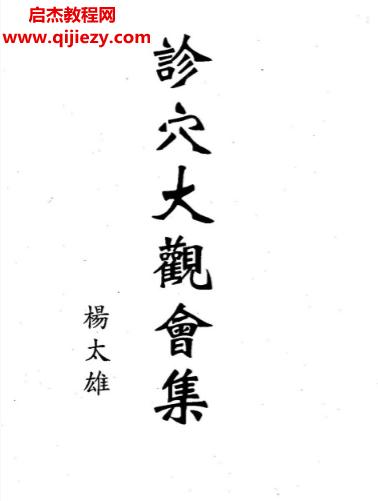 启杰教程网
www.qijiezy.com
診穴大觀會集
楊太雄